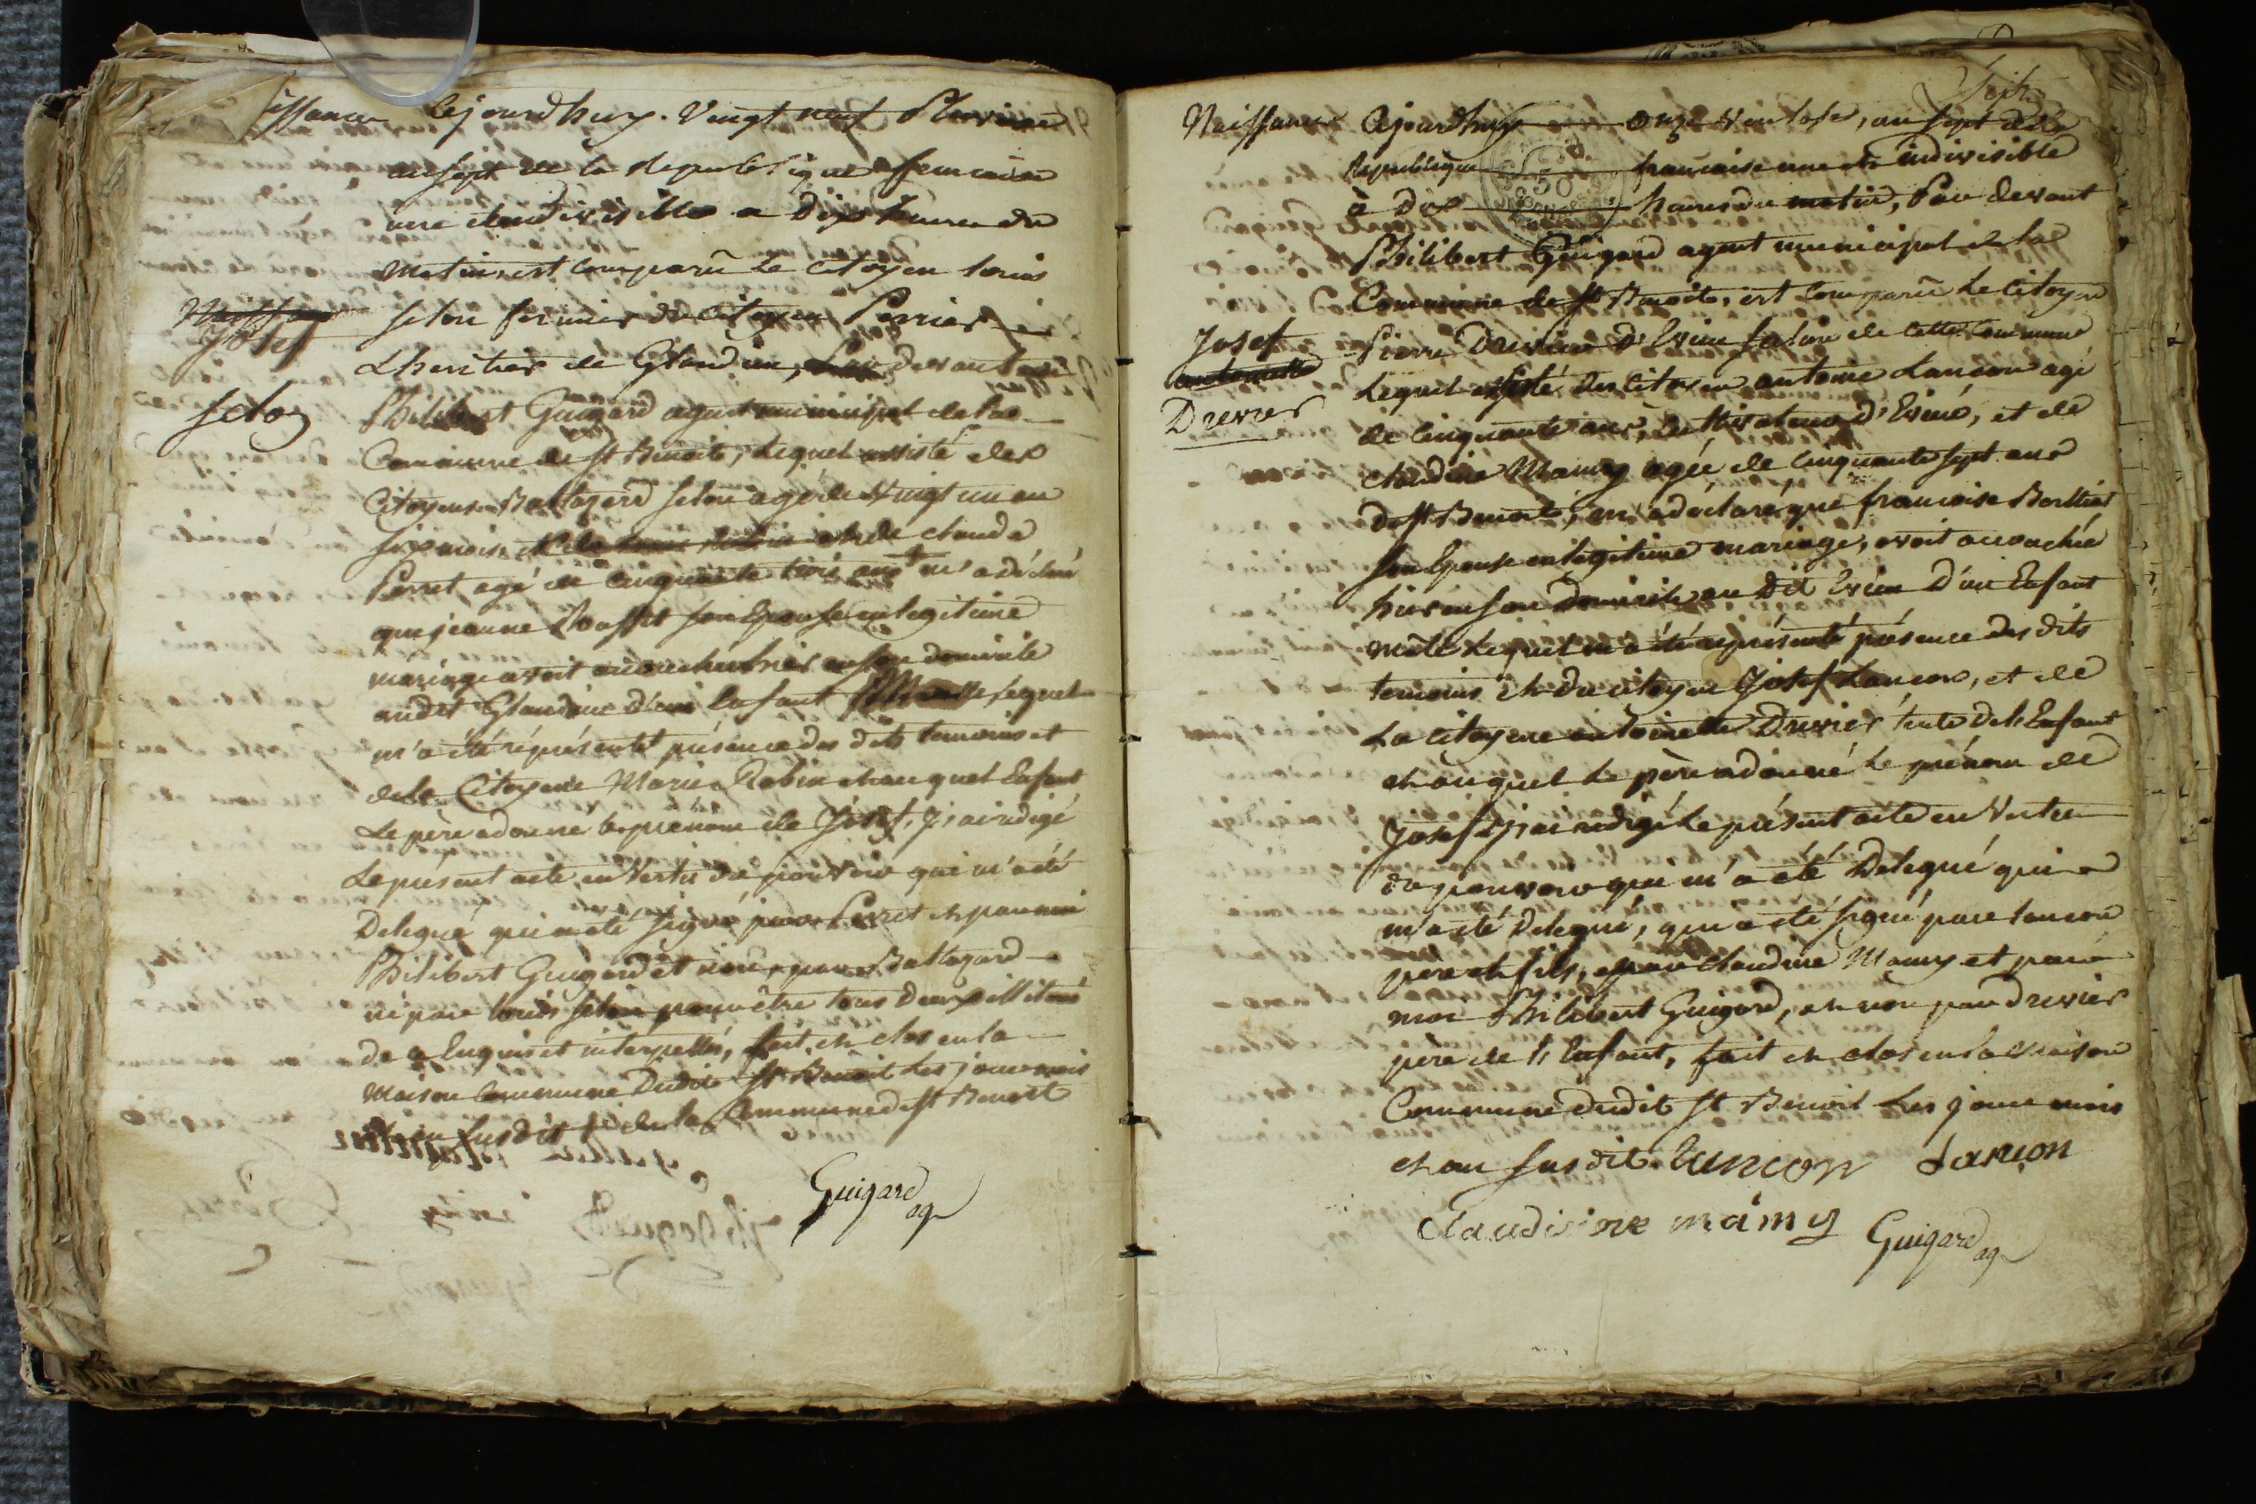 issance Cejourdhuy. Vingt neuf Pluviose
an sept de la Republique francaise
une et indivisible a dix heures du
matin, est comparû le citoyen louis
feton fermier du citoyen Perrier
Josef
Lheritier de Glandieu, Par devant
feton
Philibert Guigard agent municipal de la
Commune de St Benoit, lequel assisté des
Citoyens Baltazard feton agé de Vingt un an
six mois et de claude
Perret agé de cinquante trois ans m'a déclaré
que jeanne son Epouse en legitime
mariage avoit accouché hier en son domicile
audit Glandieu d'un Enfant Male, lequel
m'a été réprésenté présence des dits temoins et
de la Citoyene Marie Robin et auquel Enfant
Le père a donné le prénom de Josef, j'ai rédigé
Le présent acte en Vertu du pouvoir qui m'a été
Delegué qui a été signé par Perret et par moi
Philibert Guigard et non par Baltazard
ni par louis feton pour être tous deux illitéré
de ce Enquis et interpellés, fait et clos en la
maison Commune Dudit St Benoit les jour mois
et an susdit de la Commune de St Benoit
Guigard ag
Sept
Naissance Cejourdhuy onze Ventose, an sept de la
Republique francaise une et indivisible
à Dix heures du matin, Par devant
Philibert Guigard agent municipal de la
Commune de St Benoit, est comparû le citoyen
Josef
Pierre Drevier D'Evieu de cette Commune
antoinette
Lequel assisté des citoyen antoine Lancon agé
Drevier
de cinquante ans, cultivateur d'Evieu, et de
claudine Mamy agée de cinquante sept ans
de St Benoit, m'a déclaré que francoise Borllier
son Epouse en legitime mariage, avoit accouchée
hier en son Domicile au Dit Evieu D'un Enfant
male Lequel m'a été réprésenté présence des dits
temoins et du citoyen Josef Lancon, et de
La citoyene antoinette Drevier tente de l'Enfant
et auquel le père a donné le prénom de
Josef j'ai redigé Le présent acte en Vertu
du pouvoir qui m'a été Delegué qui
m'a été Delegué, qui a été signé par lancon
pere et fils, et par claudine Mamy et par
moi Philibert Guigard, et non par drevier
père de l'Enfant, fait et clos en la maison
Commune dudit St Benoit Les jour mois
et an susdit. Lancon Lancon
Claudine mamy Guigard ag